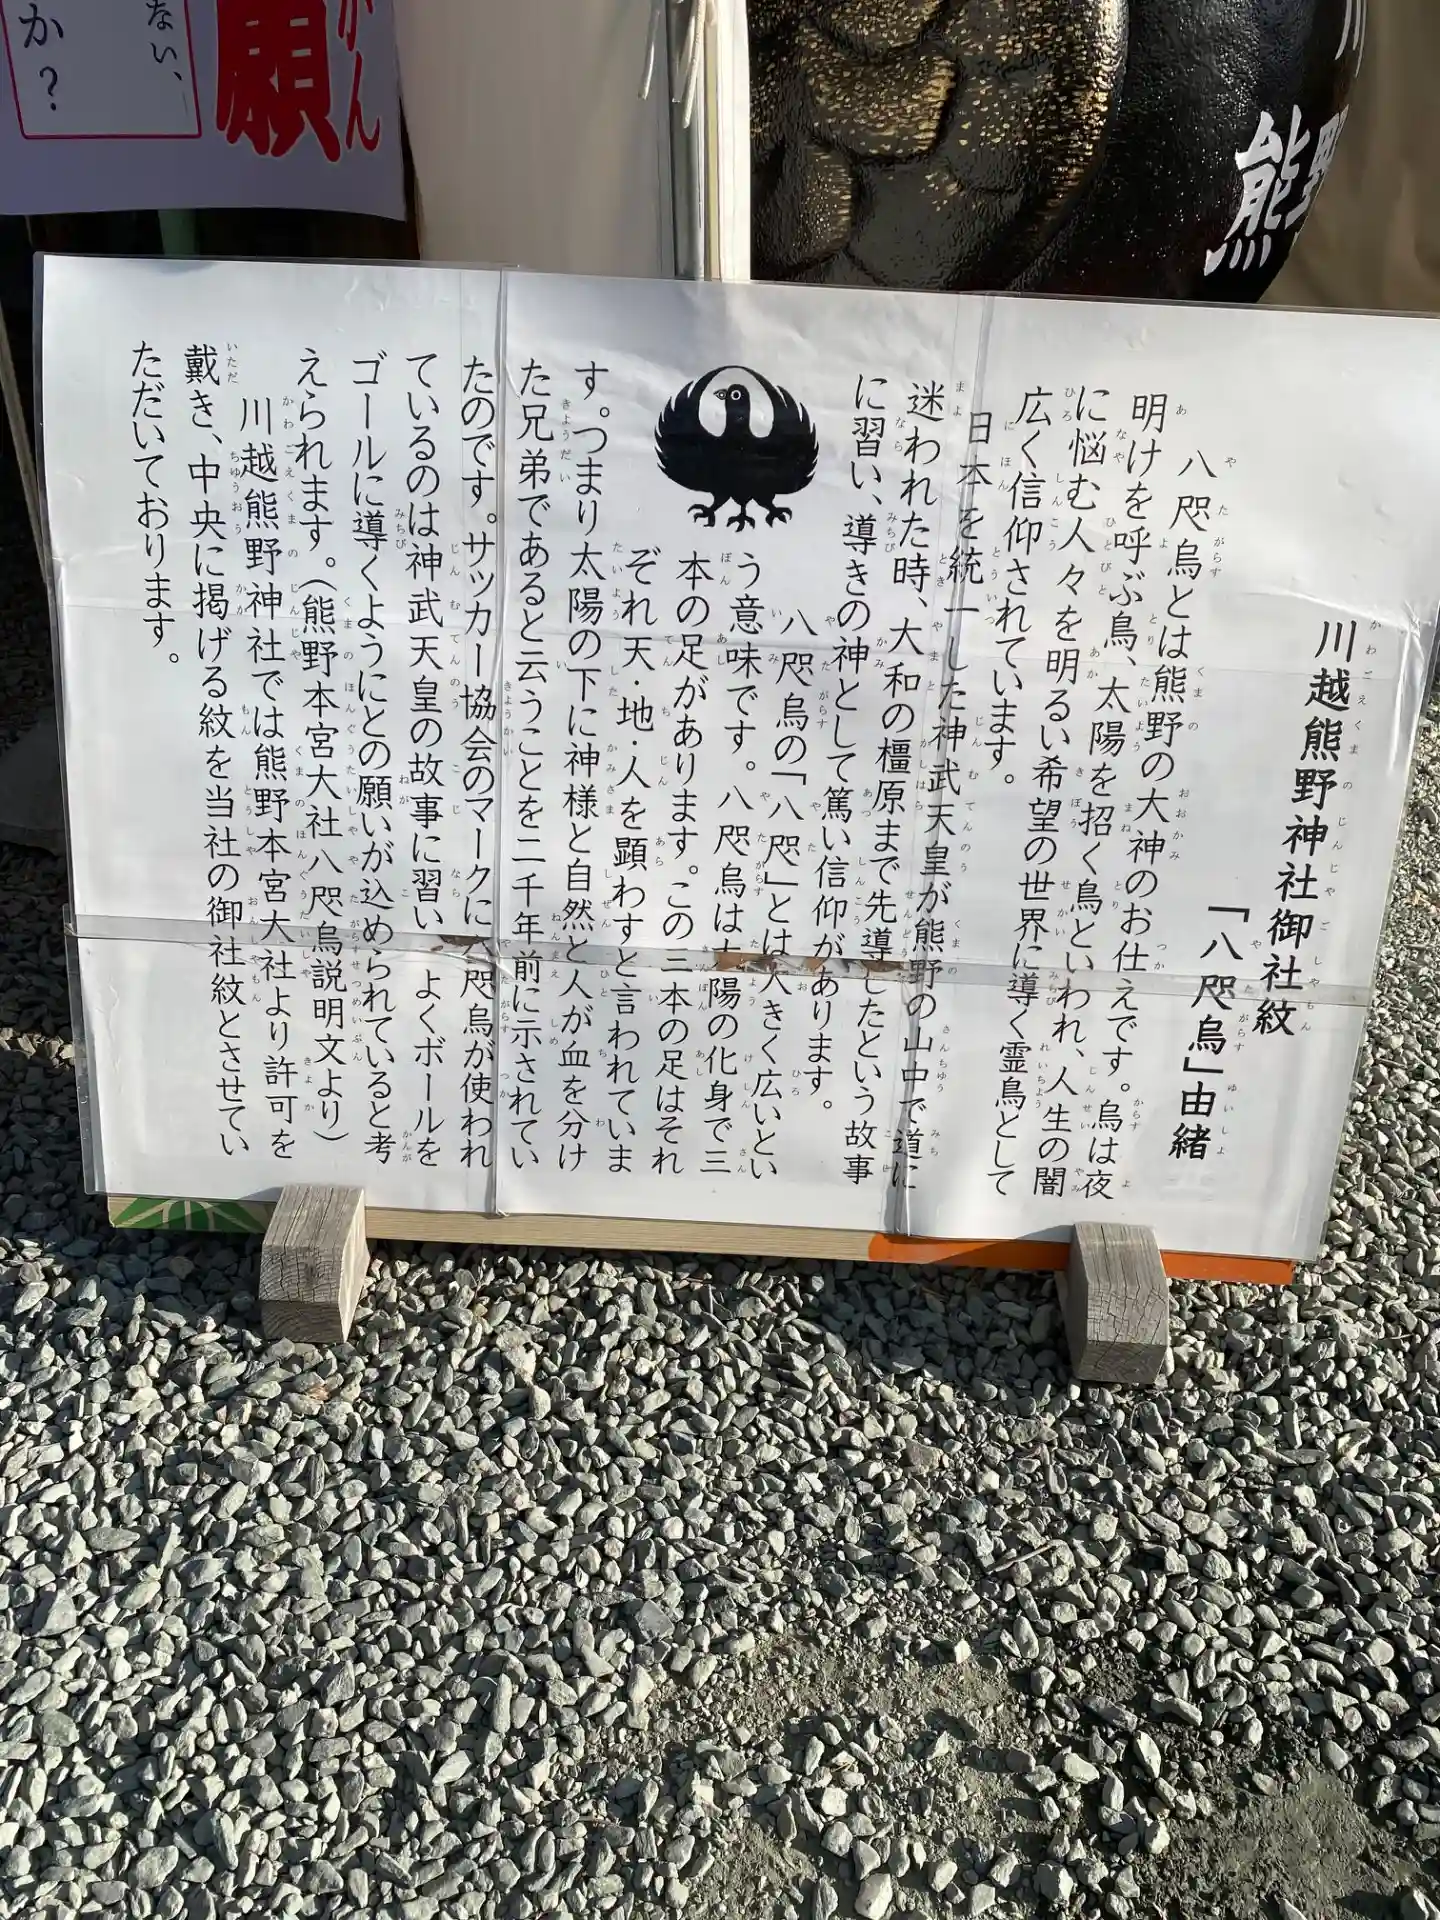 かん
願
ない、
か？
熊野
川越熊野神社御社紋
「八咫烏」由緒
八咫烏とは熊野の大神のお仕えです。烏は夜
明けを呼ぶ鳥、太陽を招く鳥といわれ、人生の闇
に悩む人々を明るい希望の世界に導く霊鳥として
広く信仰されています。
日本を統一した神武天皇が熊野の山中で道に
迷われた時、大和の橿原まで先導したという故事
に習い、導きの神として篤い信仰があります。
八咫烏の「八咫」とは大きく広いとい
う意味です。八咫烏は太陽の化身で三
本の足があります。この三本の足はそれ
ぞれ天・地・人を顕わすと言われていま
す。つまり太陽の下に神様と自然と人が血を分け
た兄弟であると云うことを二千年前に示されてい
たのです。サッカー協会のマークに八咫烏が使われ
ているのは神武天皇の故事に習い よくボールを
ゴールに導くようにとの願いが込められていると考
えられます。（熊野本宮大社八咫烏説明文より）
川越熊野神社では熊野本宮大社より許可を
戴き、中央に掲げる紋を当社の御社紋とさせてい
ただいております。